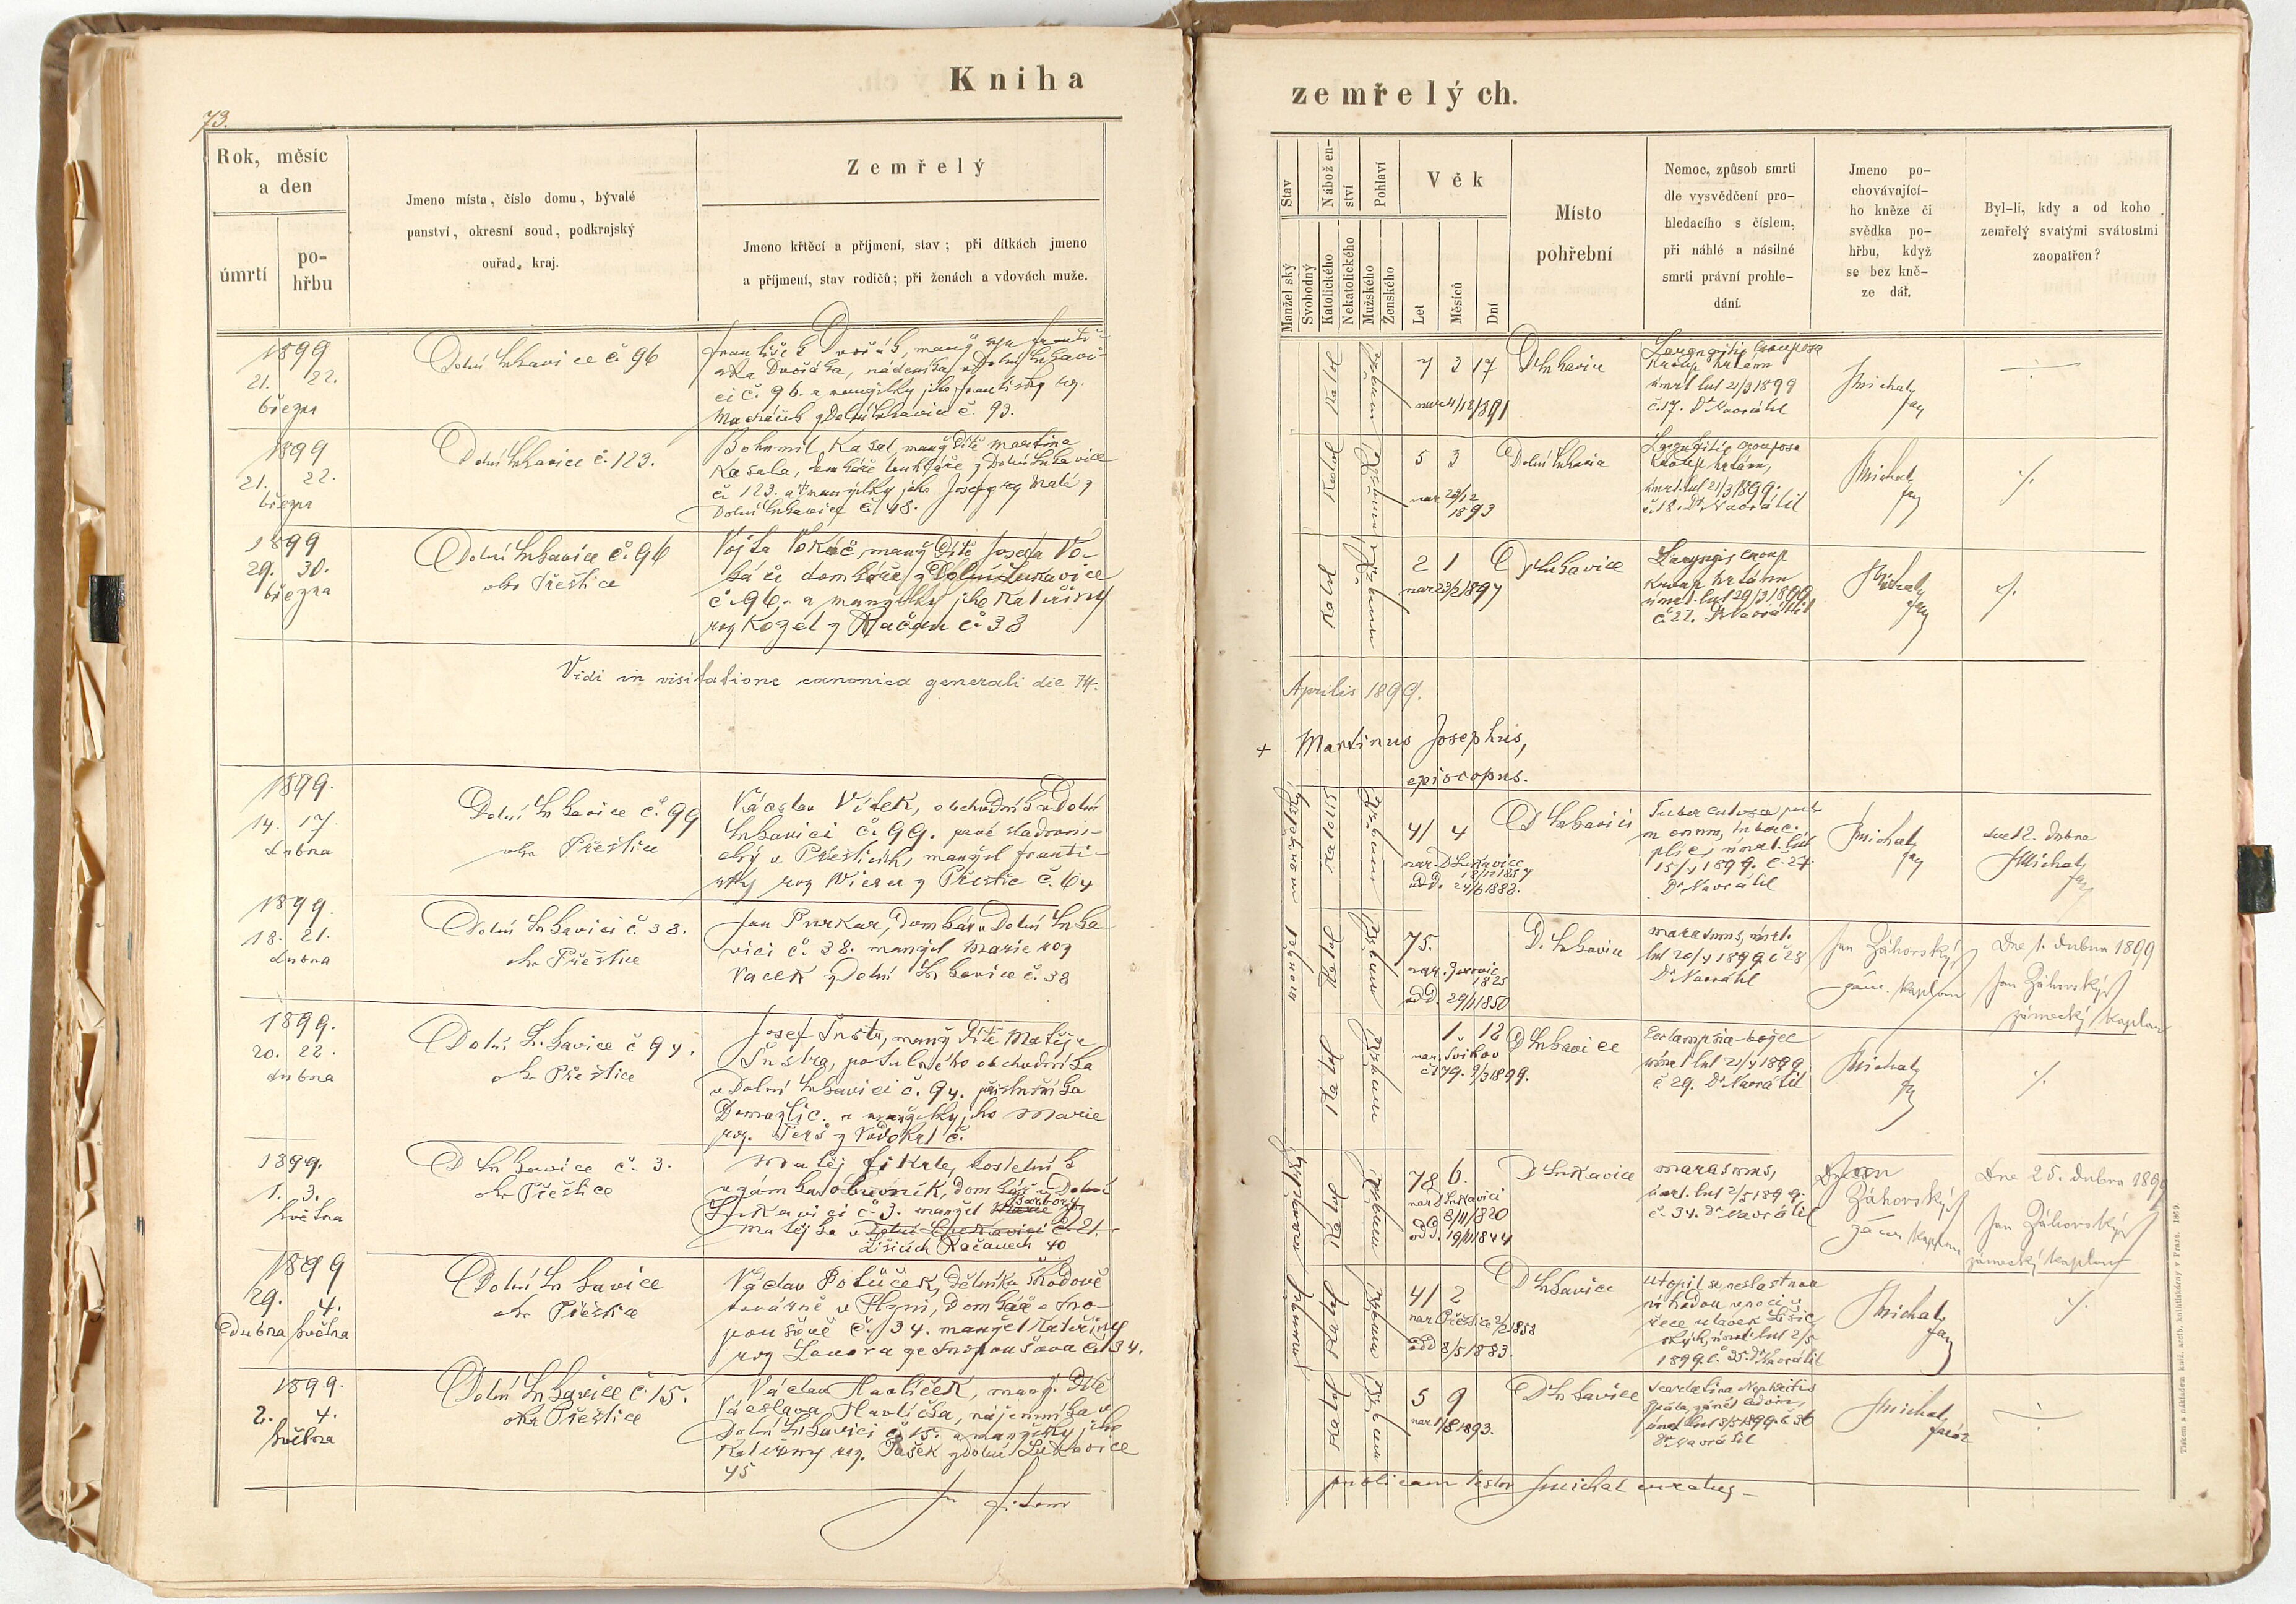 Kniha
73.
Rok, měsíc
a den
úmrtí
po-
hřbu
Jmeno místa, číslo domu, bývalé
panství, okresní soud, podkrajský
ouřad, kraj.
Zemřelý
Jmeno křtěcí a příjmení, stav; při dítkách jmeno
a příjmení, stav rodičů; při ženách a vdovách muže.
1899
21. 22.
března
Dolní Lukavice č. 96
František Dvořák, manž syn Franti-
ška Dvořáka, nádeníka v Dolní Lukavi-
ci č. 96. a manželky jeho Františky roz.
z Dolní Lukavice č. 93.
1899
21. 22.
března
Dolní Lukavice č. 123.
Bohumil Kasal, manž dítě Martina
Kasala, z Dolní Lukavice
č. 123. a manželky jeho Josefy roz Malé z
Dolní Lukavice č. 48.
1899
29. 30.
března
Dolní Lukavice č. 96
okr Přeštice
Vojta Vokáč, manž dítě Josefa Vo-
káče domkáře z Dolní Lukavice
č. 96. a manželky jeho Kateřiny
roz Kogel z Račan č. 38
Vidi in visitatione canonica generali die 14.
1899.
14. 17.
dubna
Dolní Lukavice č. 99
okr Přeštice
Václav Vítek, obchodník v Dolní
Lukavici č. 99. pravé
v Přešticích, manžel Franti-
šky roz Wieser z Přeštic č. 64
1899.
18. 21.
dubna
Dolní Lukavici č. 38.
okr Přeštice
Jan Purkar, domkář v Dolní Luka-
vici č. 38. manžel Marie roz
Vacek z Dolní Lukavice č. 38
1899.
20. 22.
dubna
Dolní Lukavice č 94.
okr Přeštice
Josef manž dítě Matěje
potulného obchodníka
v Dolní Lukavici č. 94. příslušníka
Domažlic. a manželky jeho Marie
roz. z Vodokrt č.
1899.
1. 3.
května
D Lukavice č. 3.
okr Přeštice
Matěj Fikrle, kostelník
v zámku obuvník, domkář v Dolní
Barbory
Lukavici č. 3. manžel Marie roz
Matějka v Dolní Lukavici č. 21.
Lišicích Račanech 40
1899
29. 4.
dubna května
Dolní Lukavice
okr Přeštice
Václav Potůček, dělník v Škodově
továrně v Plzni, domkář v Sno-
poušově č. 34. manžel Kateřiny
roz Lenora ze Snopoušova č. 34.
1899.
2. 4.
května
Dolní Lukavice č 15.
okr Přeštice
Václav Havlíček, manž. dítě
Václava Havlíčka, nájemníka v
Dolní Lukavici č 15. a manželky jeho
Kateřiny roz. Pašek z Dolní Lukavice
45
zemřelých.
Stav
Nábožen-
ství
Pohlaví
Věk
Manželský
Svobodný
Katolického
Nekatolického
Mužského
Ženského
Let
Měsíců
Dní
Místo
pohřební
Nemoc, způsob smrti
dle vysvědčení pro-
hledacího s číslem,
při náhlé a násilné
smrti právní prohle-
dání.
Jmeno po-
chovávající-
ho kněze či
svědka po-
hřbu, když
se bez kně-
ze dál.
Byl-li, kdy a od koho
zemřelý svatými svátostmi
zaopatřen?
Katol
7 3 17
nar 4/12/1891
D Lukavice
Laryngitis crouposa
Kroup hrtanu
úmrt. list 21/3 1899
č. 17. Dr Navrátil
JMichal
far
Katol
5 3
nar 20/12
1893
Dolní Lukavice
Laryngitis crouposa
Kroup hrtanu,
úmrt. list 21/3 1899.
č. 18. Dr Navrátil
JMichal
far
Katol
2 1
nar 23/2/1897
D Lukavice
Laryngis croup
Kroup hrtanu
úmrt. list 29/3 1899
č 22. Dr Navrátil
JMichal
far
Aprilis 1899.
+ Martinus Josephus,
episcopus.
41 4
nar. D Lukavice
18/12 1857
odd. 24/6 1882.
D Lukavici
Tuberculosa pul
monum, tuberc.
plic, úmrt. list
15/4 1899. č. 27.
Dr Navrátil
JMichal
far
dne 12. dubna
JMichal
far
Katol
75.
1825
odd. 29/1/1850
D. Lukavice
marasmus, úmrt.
list 20/4 1899 č 28
Dr Navrátil
Jan Záhorský
zám. kaplan
Dne 1. dubna 1899
Jan Záhorský
zámecký kaplan
Katol
1. 12
nar. Švihov
č 179. 9/3 1899.
D Lukavice
Eclampsia božec
úmrt list 21/4 1899
č 29. Dr Navrátil
JMichal
far
Katol
78 6.
nar D Lukavici
8/11/1820
odd. 19/11/1844
D Lukavice
marasmus,
úmrt. list 2/5 1899.
č. 34. Dr Navrátil
Jan
Záhorský
zám kaplan
Dne 25. dubna 1899
Jan Záhorský
zámecký kaplan
Katol
41 2
nar Přeštice 2/2 1858
odd 8/5 1883.
D Lukavice
utopil se nešťastnou
náhodou v noci v
řece Lišic
ských, úmrt. list 2/5
1899 č. 35. Dr Navrátil
JMichal
far
Katol
5 9
nar 1/8 1893.
D Lukavice
Scarlatina Nephritis
Spála, zánět ledvin,
úmrt list 3/5 1899 č 36
Dr Navrátil
JMichal
farář
publicam testor JMichal curatus
Tiskem a nákladem kníž. arcib. knihtiskárny v Praze. 1869.